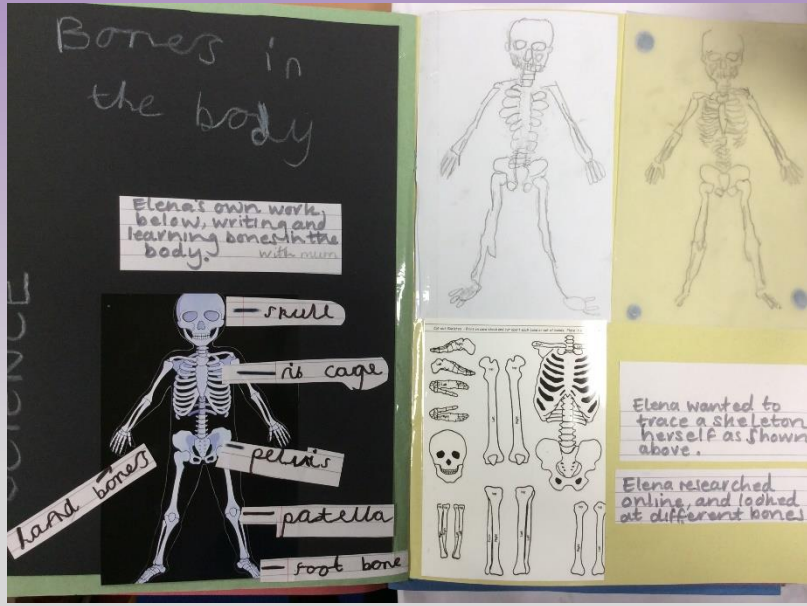 Bones in
the body
Elena's own work,
below, writing and
learning bones in the
body.
with mum
SCIENCE
skull
rib cage
pelvis
hand bones
patella
foot bone
Elena wanted to
trace a skeleton
herself as shown
above.
Elena researched
online, and looked
at different bones